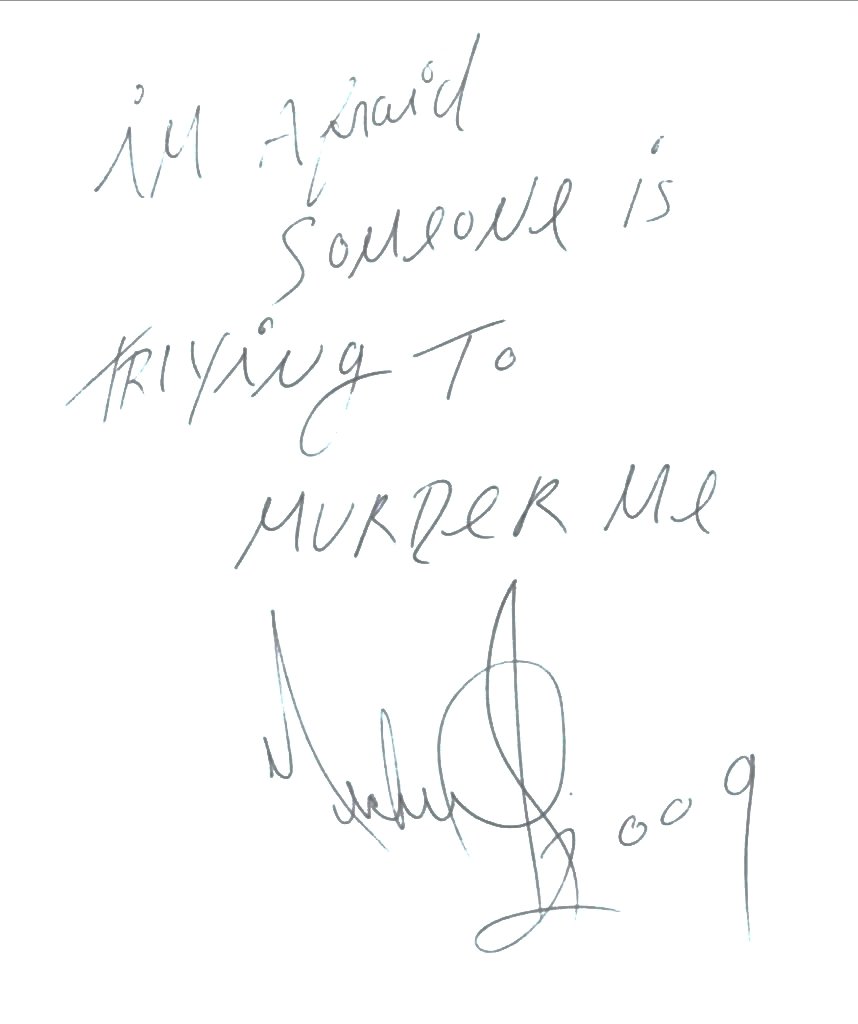 iM Afraid
SOMeONe is
TRiYiNg To
MURDeR Me
Michael
2009